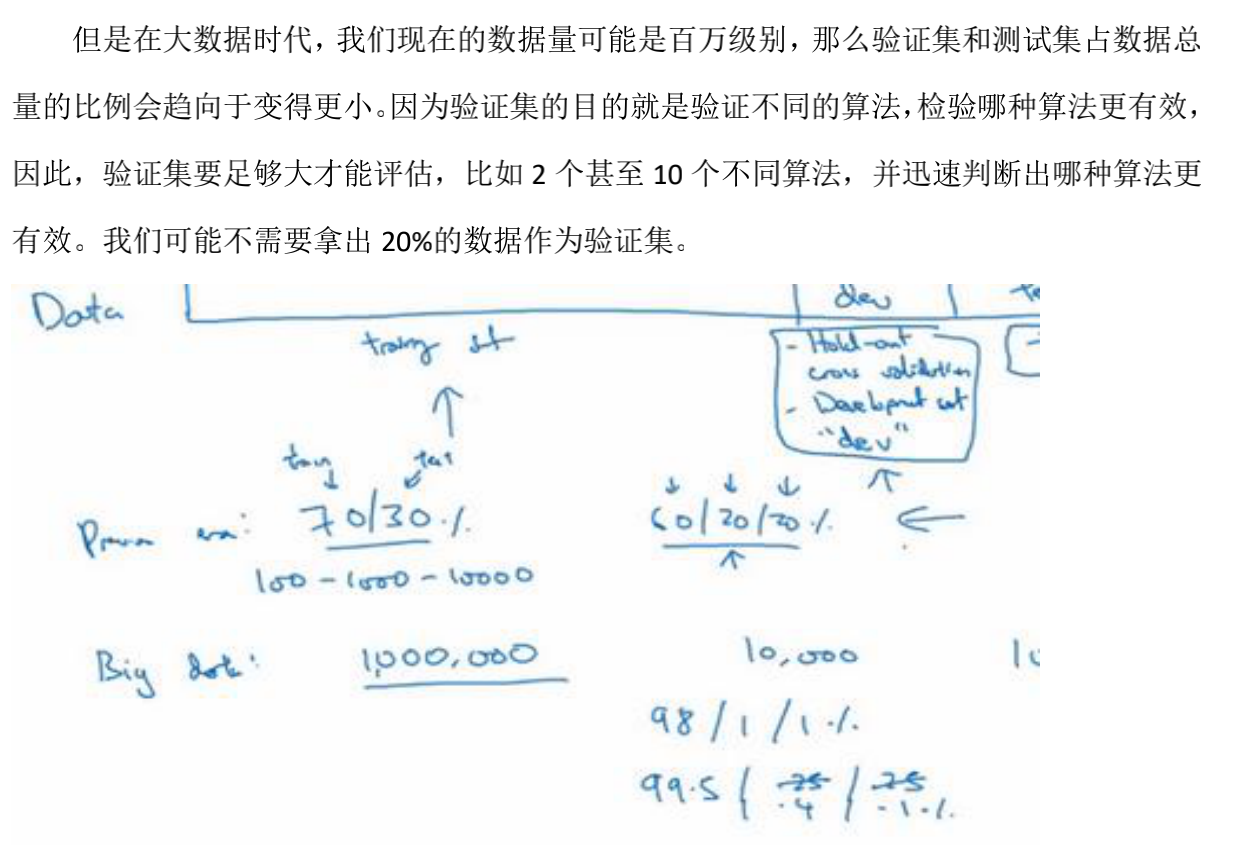 但是在大数据时代，我们现在的数据量可能是百万级别，那么验证集和测试集占数据总
量的比例会趋向于变得更小。因为验证集的目的就是验证不同的算法，检验哪种算法更有效，
因此，验证集要足够大才能评估，比如 2 个甚至 10 个不同算法，并迅速判断出哪种算法更
有效。我们可能不需要拿出 20%的数据作为验证集。
Data
dev
set
- Hold-out
cross validation
- Development set
"dev"
train test
70/30 %
60/20/20 %
100 - 1000 - 10000
Big data:
1,000,000
10,000
98 / 1 / 1 %
99.5 / .25 / .25
.4 .1 %